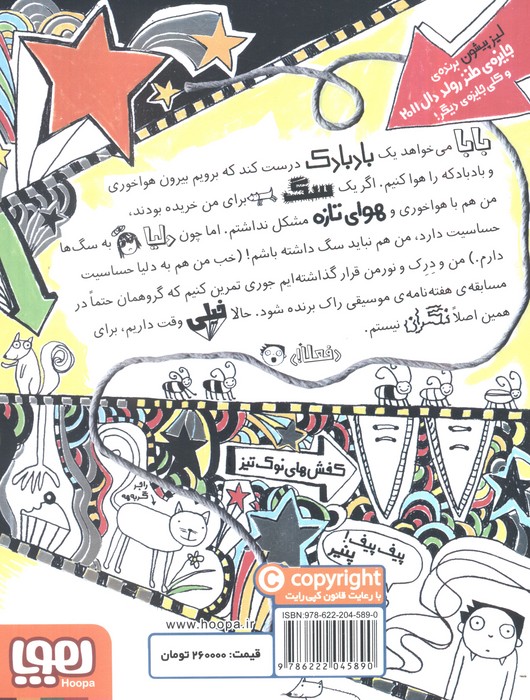 لیز پیشون برنده‌ی
جایزه‌ی طنز رولد دال ۲۰۱۱
و کلی جایزه‌ی دیگر!
بابا می‌خواهد یک بادبادک درست کند که برویم بیرون هواخوری
و بادبادکه را هوا کنیم. اگر یک سگ برای من خریده بودند،
من هم با هواخوری و هوای تازه مشکل نداشتم. اما چون دلیا به سگ‌ها
حساسیت دارد، من هم نباید سگ داشته باشم! (خب من هم به دلیا حساسیت
دارم.) من و دِرِک و نورمن قرار گذاشته‌ایم جوری تمرین کنیم که گروهمان حتماً در
مسابقه‌ی هفته‌نامه‌ی موسیقی راک برنده شود. حالا خیلی وقت داریم، برای
همین اصلاً نگران نیستم.
(فعلاً)
کفش‌های نوک تیز
راجر
گربهه
پیف پیف!
پنیر
© copyright
با رعایت قانون کپی رایت
ISBN:978-622-204-589-0
9 786222 045890
www.hoopa.ir
قیمت: ۲۶۰۰۰۰ تومان
هوپا
Hoopa